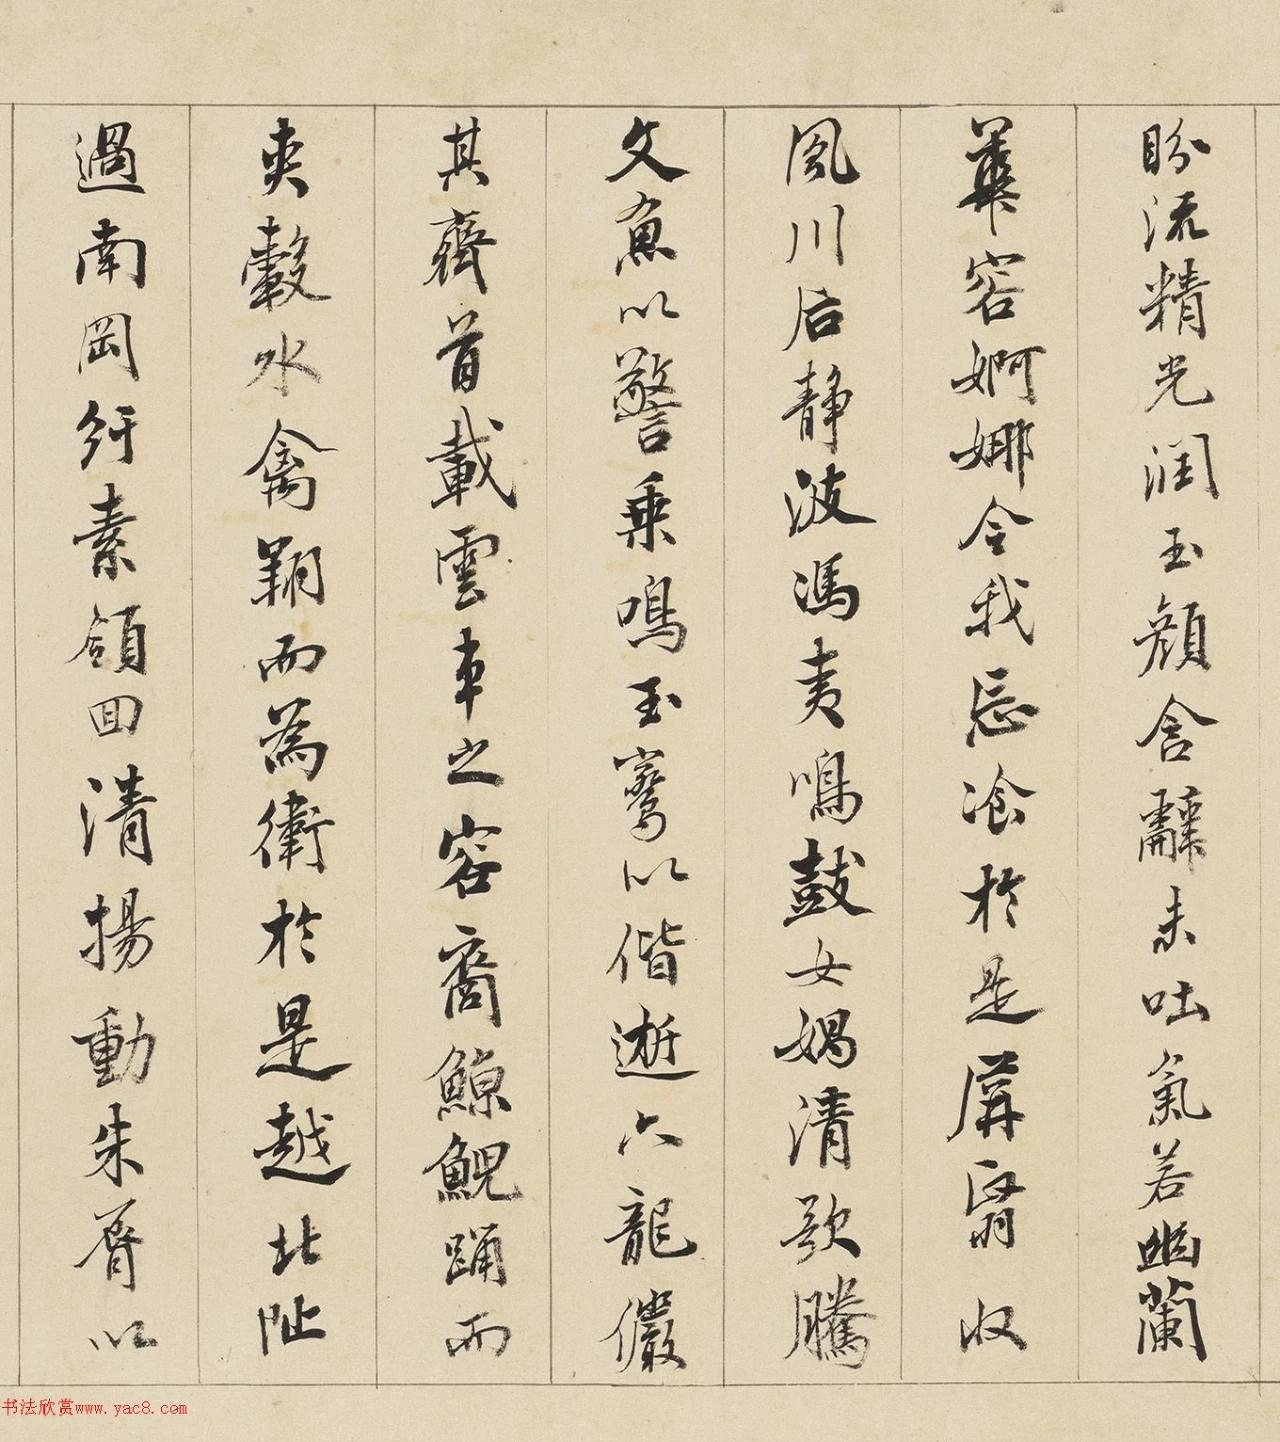 盼流精光润玉顔含辭未吐氣若幽蘭
華容婀娜令我忘飡於是屏翳收
風川后静波馮夷鳴鼓女媧清歌騰
文魚以警乗鳴玉鸞以偕逝六龍儼
其齊首載雲車之容裔鯨鯢踊而
夾轂水禽翔而為衛於是越北沚
過南岡紆素領回清揚動朱脣以
书法欣赏www.yac8.com